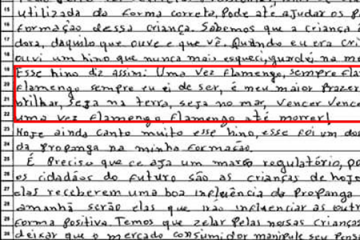 utilizada da forma correta, Pode até ajudar os p
formação dessa criança. Sabemos que a criança é
dora, daquilo que ouve e que vê. Quando eu era cri
ouvi um hino que nunca mais esqueci, guardei na m
Esse hino diz assim: Uma vez flamengo, sempre fla
flamengo sempre eu ei de ser, é meu maior Prazer
brilhar, seja na terra, seja no mar, Vencer Vence
uma vez flamengo, flamengo até morrer!
Hoje ainda canto muito esse hino, esse foi um do
da Propanga na minha formação.
É Preciso que ce aja um marco regulatório, po
os cidadãos do futuro são as crianças de hoje
elas receberem uma boa influência da Propanga
amanhã serão elas que vão influenciar as outr
forma positiva Temos que zelar pelas nossas crian
deixar que o mercado consumidor manipule seu pens